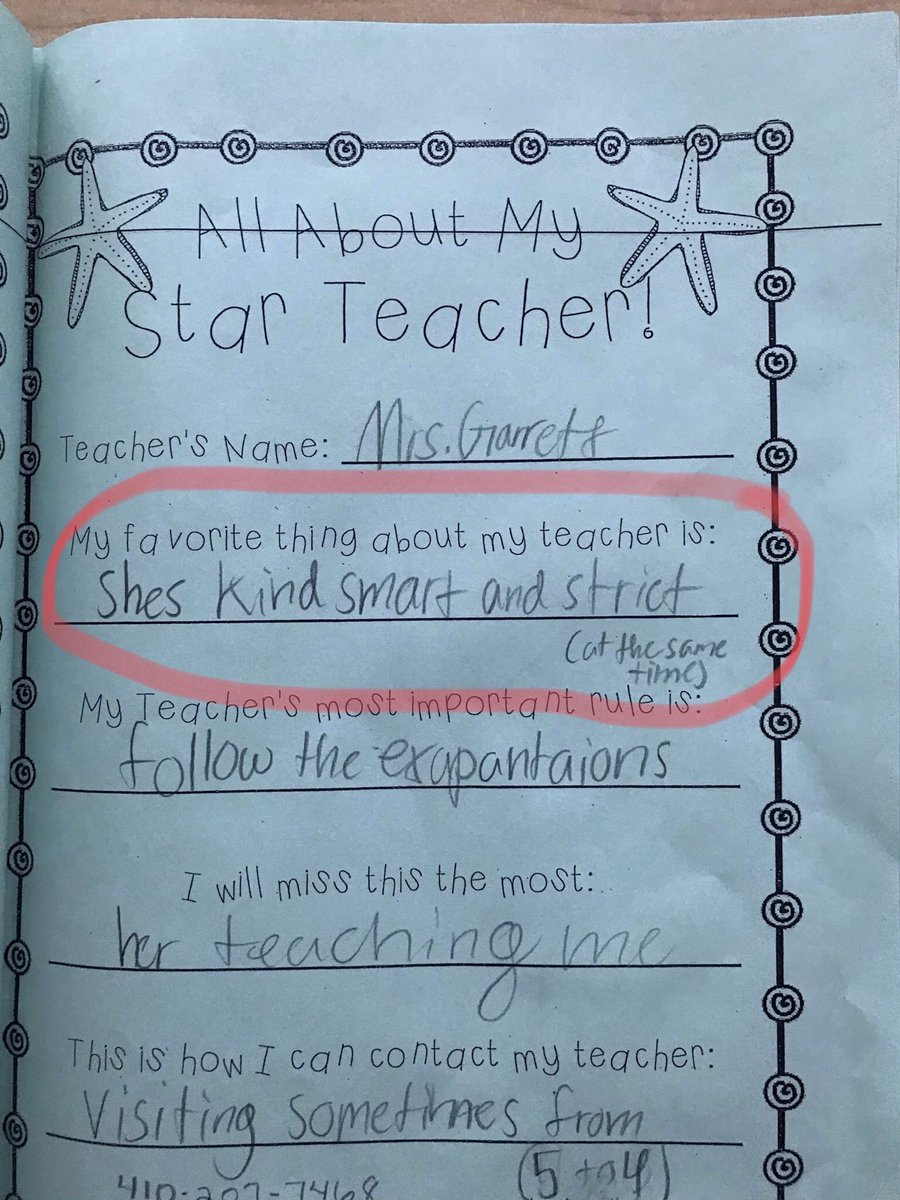 All About My
Star Teacher!
Teacher's Name: Mrs. Garrett
My favorite thing about my teacher is:
Shes kind smart and strict
(at the same
time)
My Teacher's most important rule is:
follow the exapantaions
I will miss this the most:
her teaching me
This is how I can contact my teacher:
Visiting sometimes from
(5 to 4)
410-207-7468